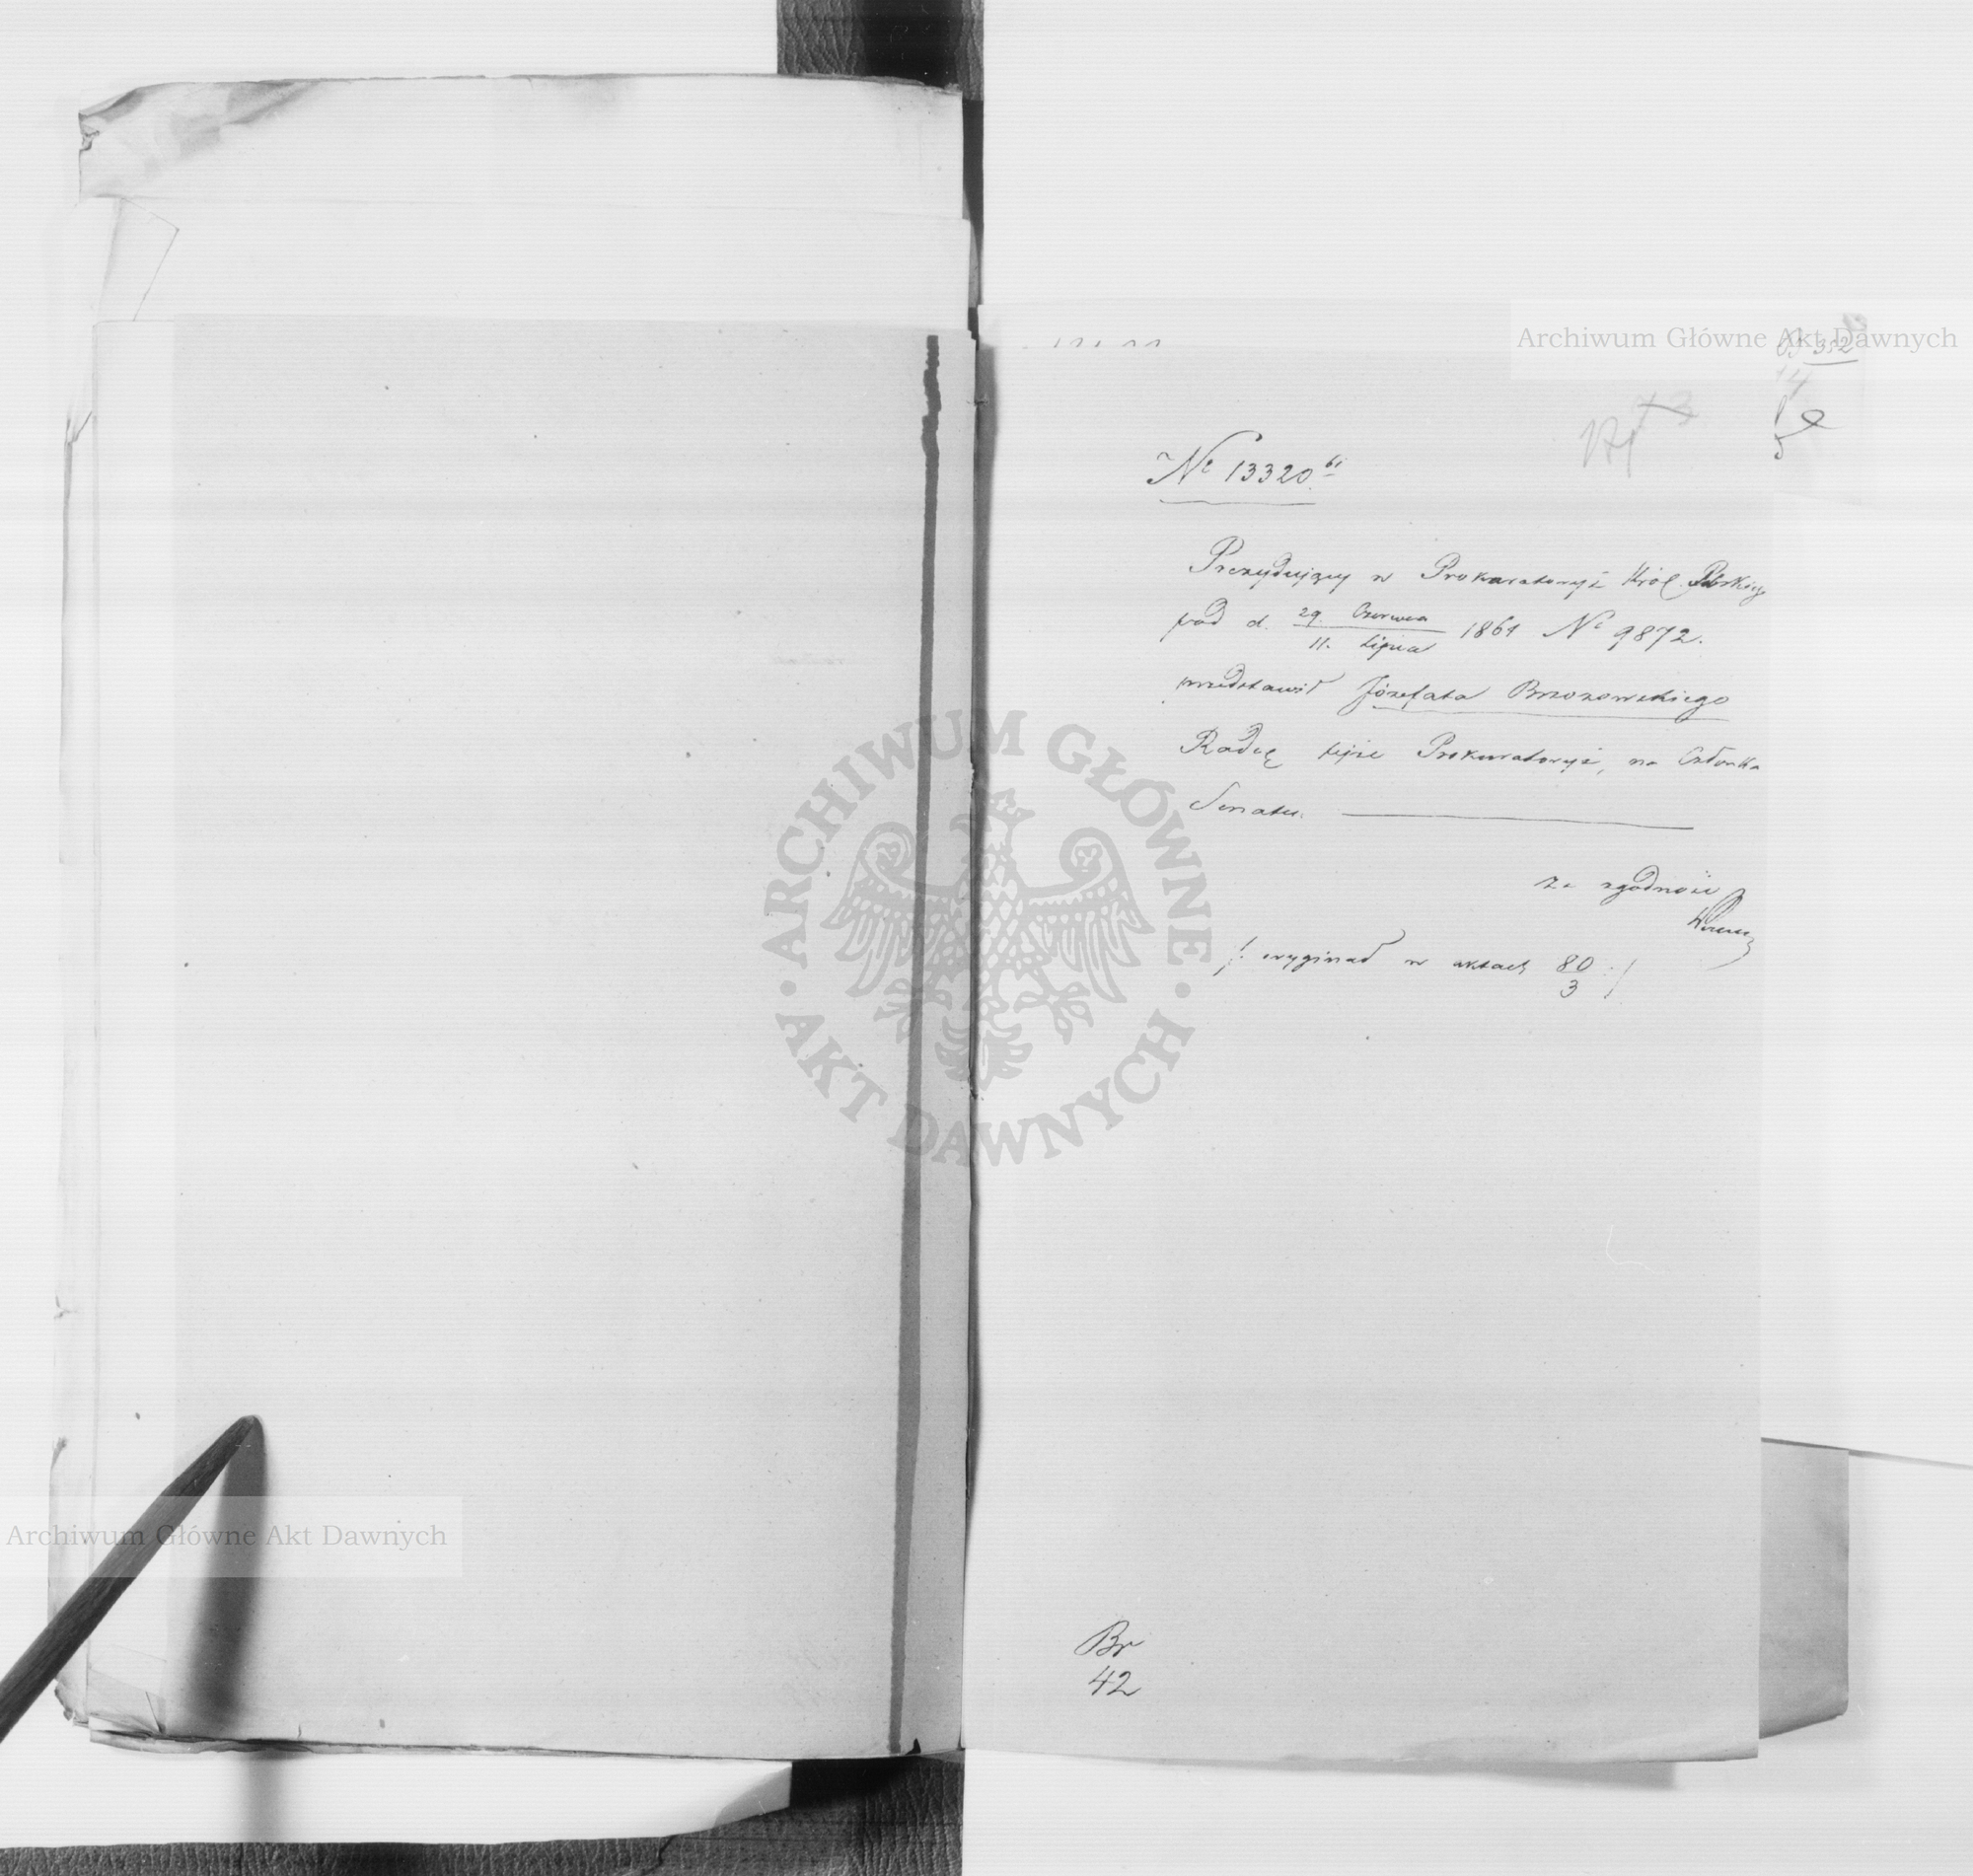 Archiwum Główne Akt Dawnych
352
14
173
№ 13320 61
Prezydujący w Prokuratoryi Król. Polskiego
pod d. 29. Czerwca / 11. Lipca 1861 № 9872.
przedstawił Józefata Brzozowskiego
Radcę tejże Prokuratoryi, na Członka
Senatu.
za zgodność
/: oryginał w aktach 80/3 :/
ARCHIWUM GŁÓWNE
AKT DAWNYCH
Archiwum Główne Akt Dawnych
Br
42